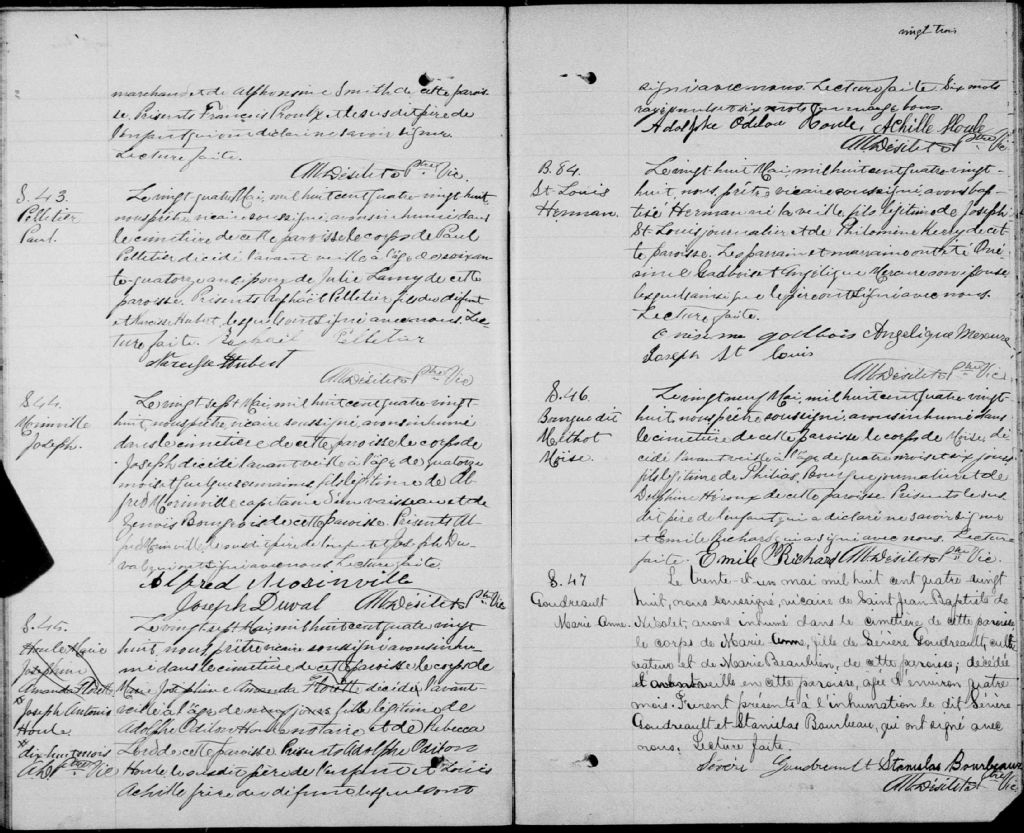 marchand et de Alphonsine Smith de cette parois-
se. Présents François Proulx et le susdit père de
l'enfant qui ont déclaré ne savoir signer.
Lecture faite.
AM Désilets Ptre Vic.
S. 43.
Pelletier
Paul.
Le vingt quatre Mai, mil huit cent quatre vingt huit
nous prêtre vicaire soussigné, avons inhumé dans
le cimetière de cette paroisse le corps de Paul
Pelletier décédé l'avant veille à l'âge de soixan-
te quatorze ans époux de Julie Lamy de cette
paroisse. Présents Raphaël Pelletier du défunt
et Narcisse Hubert, lesquels ont signé avec nous. Lec-
ture faite. Raphael Pelletier
Narcisse Hubert
AM Désilets Ptre Vic
S. 44.
Morinville
Joseph.
Le vingt sept Mai, mil huit cent quatre vingt
huit, nous prêtre vicaire soussigné, avons inhumé
dans le cimetière de cette paroisse le corps de
Joseph décédé l'avant veille à l'âge de quatorze
mois et quelques semaines, fils légitime de Al-
fred Morinville capitaine d'un vaisseau et de
Bourgeois de cette paroisse. Présents Al-
fred Morinville, le susdit père de l'enfant et Joseph Du-
val qui ont signé avec nous. Lecture faite.
Alfred Morinville
Joseph Duval AM Désilets Ptre Vic
S. 45.
Houle Marie
Josephine
Amanda Florette
Joseph Antonio
Houle
dix huit mois
AMD Ptre Vic
Le vingt sept Mai, mil huit cent quatre vingt
huit, nous prêtre vicaire soussigné avons inhu-
mé dans le cimetière de cette paroisse le corps de
Marie Josephine Amanda Florette décédé l'avant-
veille à l'âge de neuf jours fille légitime de
Adolphe Odilon Houle notaire et de Rebecca
Lord de cette paroisse. Présents Adolphe Odilon
Houle, le susdit père de l'enfant et Louis
Achille frère du défunt lesquels ont
vingt trois
signé avec nous. Lecture faite. Six mots
rayés nuls et six mots en marge bons.
Adolphe Odilon Houle, Achille Houle
AM Désilets Ptre Vic
B. 84.
St Louis
Herman.
Le vingt huit Mai, mil huit cent quatre vingt-
huit, nous, prêtre vicaire soussigné, avons bap-
tisé Herman né la veille fils légitime de Joseph
St Louis journalier et de Philomine Kerry de cet-
te paroisse. Les parrain et marraine ont été Oné-
sime Gadbois et Angélique Mercure son épouse
lesquels ainsi que le père ont signé avec nous.
Lecture faite.
Onisime godbois Angeliqua Mercure
Joseph St Louis
AM Désilets Ptre Vic
S. 46.
Bourque dit
Methot
Moïse.
Le vingt neuf Mai, mil huit cent quatre vingt
huit, nous prêtre soussigné, avons inhumé dans
le cimetière de cette paroisse le corps de Moïse, dé-
cédé l'avant veille à l'âge de quatre mois et six jours
fils légitime de Philias Bourque journalier et de
Delphine Héroux de cette paroisse. Présents le sus
dit père de l'enfant qui a déclaré ne savoir signer
et Emile Richard qui a signé avec nous. Lecture
faite. Emile Richard AM Désilets Ptre Vic.
S. 47
Goudreault
Marie Anne.
Le trente-et-un mai mil huit cent quatre vingt
huit, nous soussigné, vicaire de Saint Jean Baptiste de
Nicolet, avons inhumé dans le cimetière de cette paroisse
le corps de Marie Anne, fille de Sévère Goudreault, culti
vateur et de Marie Beaubien, de cette paroisse; décédée
l'avant veille en cette paroisse, agée d'environ quatre
mois. Furent présents à l'inhumation le dit Sévère
Goudreault et Stanislas Bourbeau, qui ont signé avec
nous. Lecture faite.
Sévère Goudreault Stanislas Bourbeaux
AM Désilets Ptre Vic